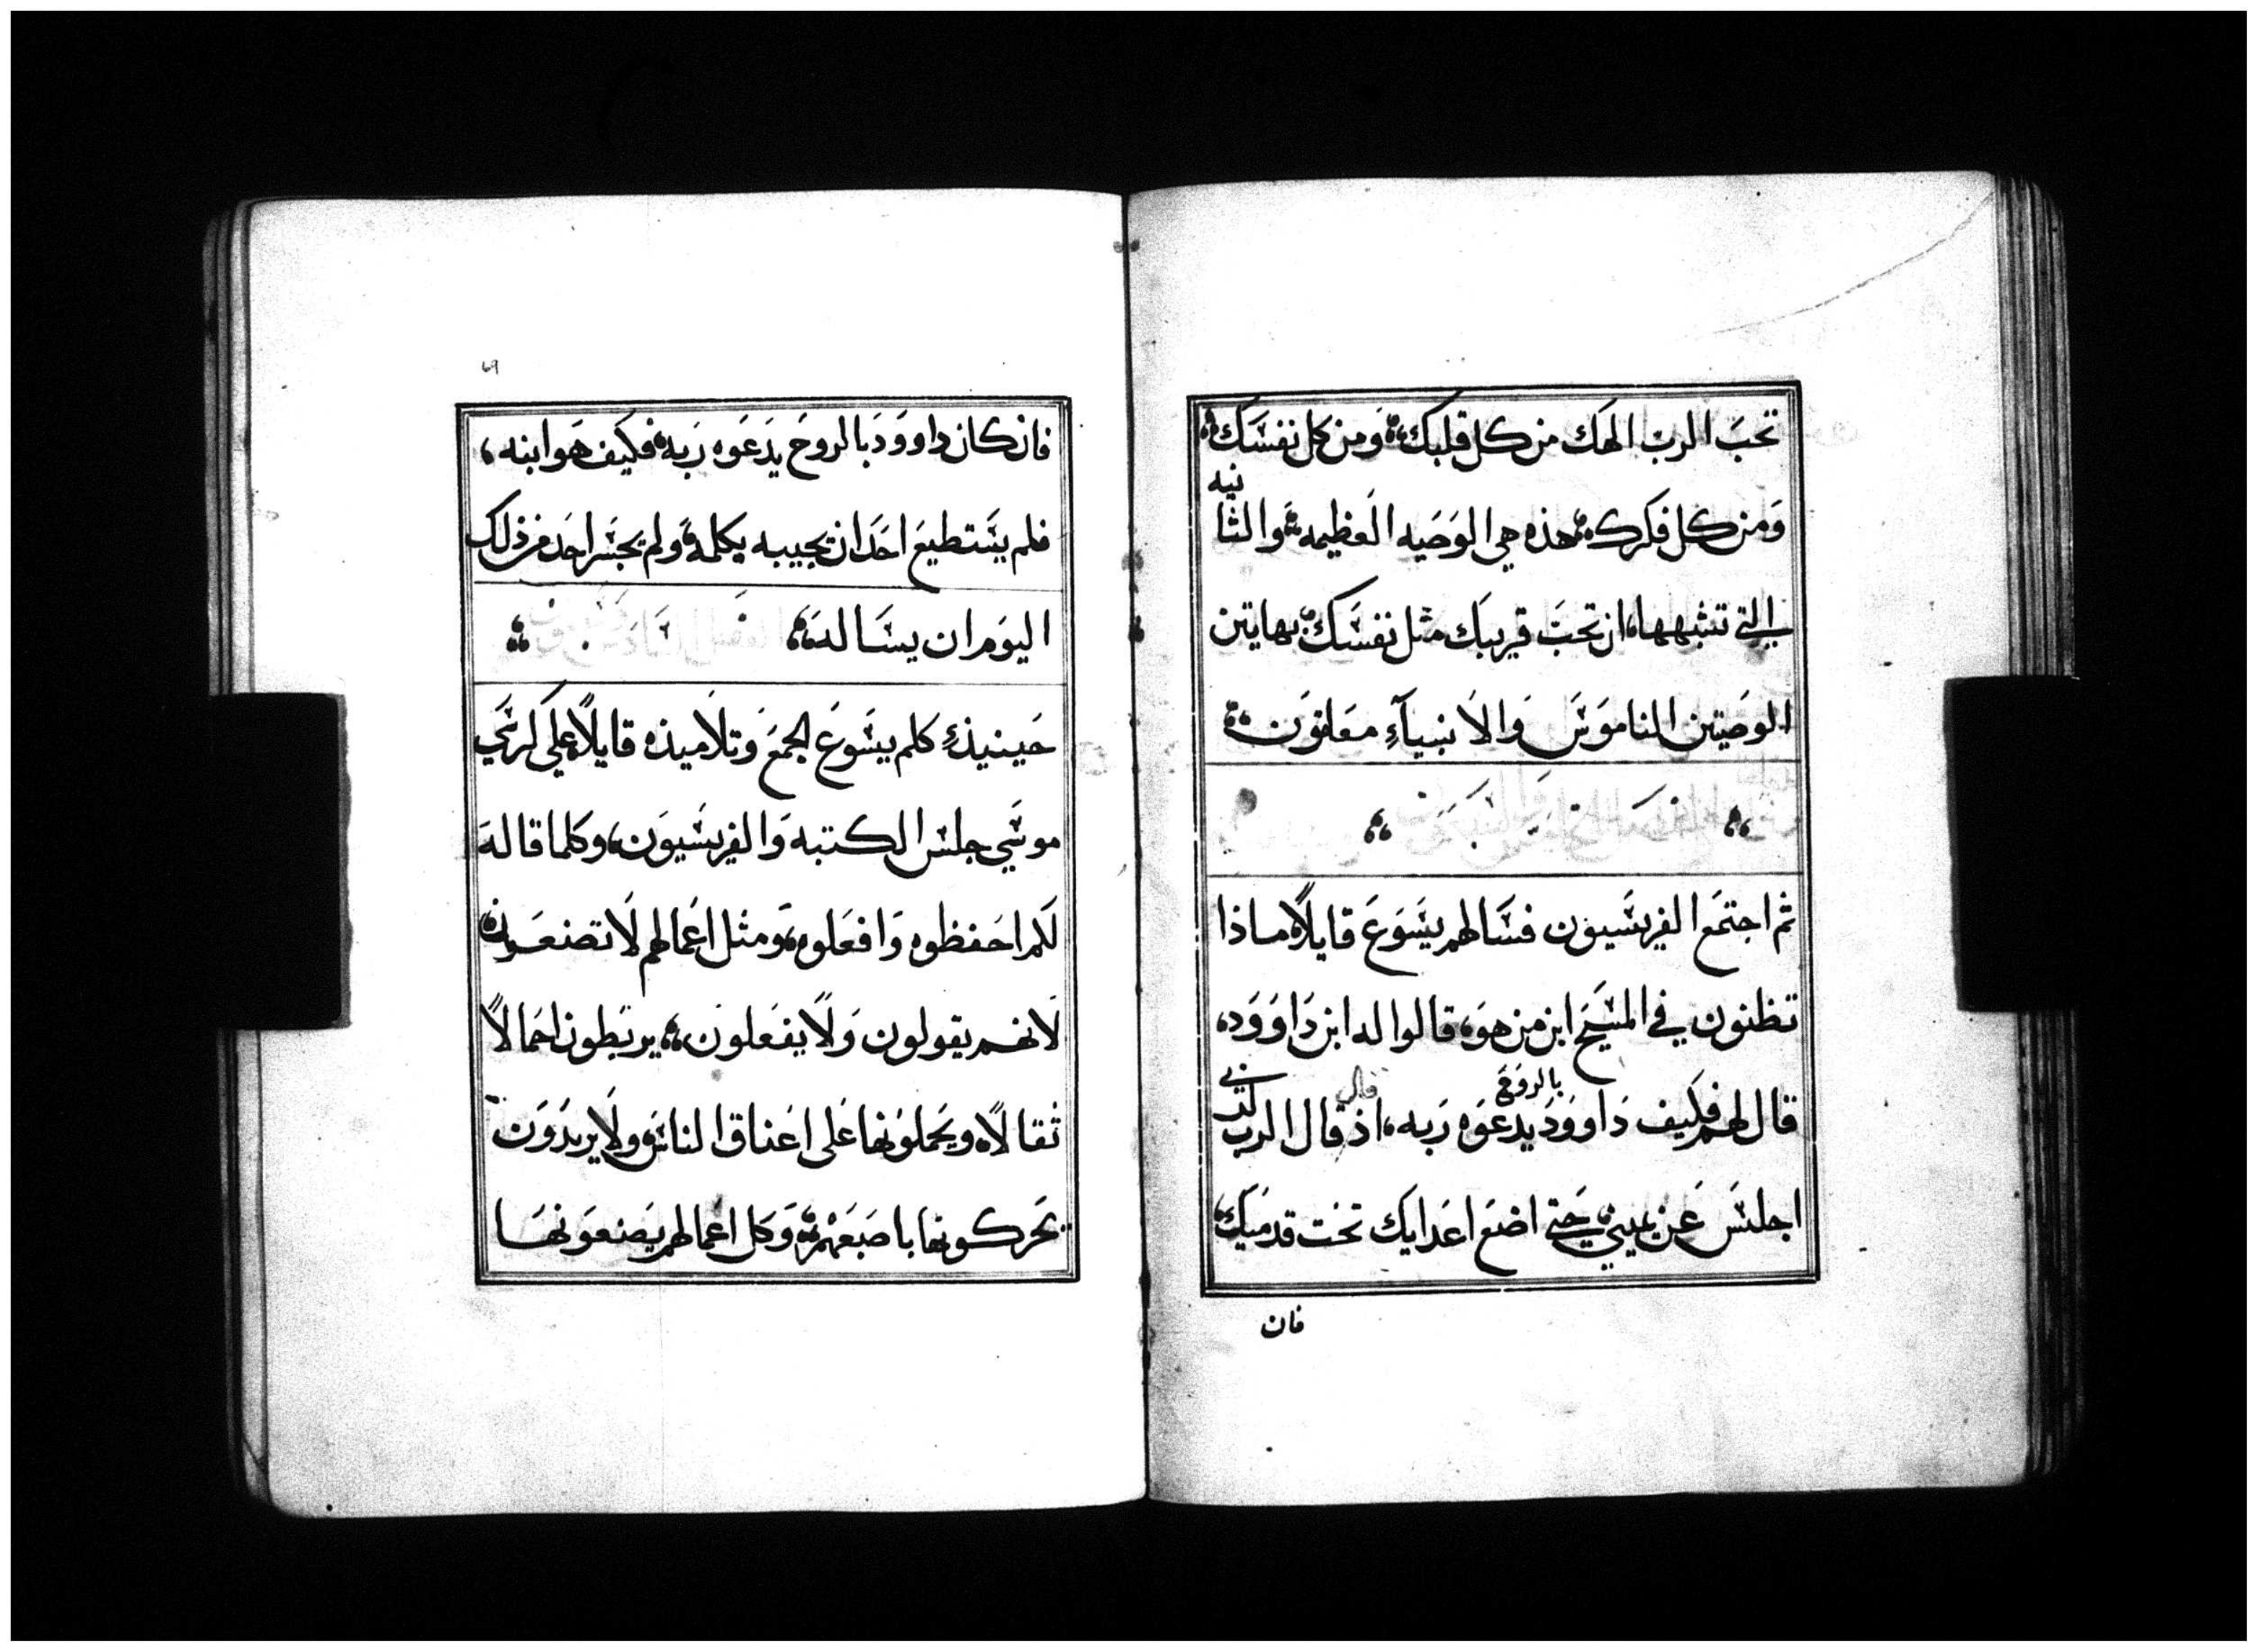 تحبَ الربّ الهَك من كل قلبك، وَمن كل نفسَك،
وَمن كل فكرك، هذه هي الوَصَيه العَظيمه، والثانيه
التي تشبهها، ان تحبَ قريبَك مثل نفسَك، بهاتين
الوصَيتين الناموَسَ وَالانبيآءِ معَلقوَن
ثم اجتمَع الفريسَيون فسَالهم يسَوَعَ قايلاً ماذا
تظنون في المسَيحَ ابن من هوَ، قالوا له ابن دَاوَوَد،
قال لهم فكيف دَاووَد بالروَحَ يدعَوَه رَبه، اذ قال قال الرب لربي
اجلسَ عَن يميني حَتي اضعَ اعَدايَك تحَت قدمَيك،
فان
٦٩
فان كان داووَدَ بالروحَ يدَعَوه رَبه، فكيَف هَو ابنه،
فلم يسَتطيعَ احَد ان يجيبه بكلمه، ولم يجسَر احَد من ذلك
اليوَم ان يسَاله
حَينيذٍ كلم يسَوعَ الجمعَ وَتلاميذه قايلاً، علَى كرسَي
موسَي جلسَ الكتبه وَالفريسَيوَن، وكلما قاله
لَكم احَفظوه وَافعَلوه، وَمثل اعَمالهم لاَ تصنعَون،
لاَنهم يقولون وَلاَ يفعَلون، يربَطون احَمالاً
ثقالاً، ويحَملوَنها علَى اعَناق الناسَ، ولاَ يريدَوَن
يحَركونها باصَبعَهم، وَكل اعَمالهم يصَنعَونهَا